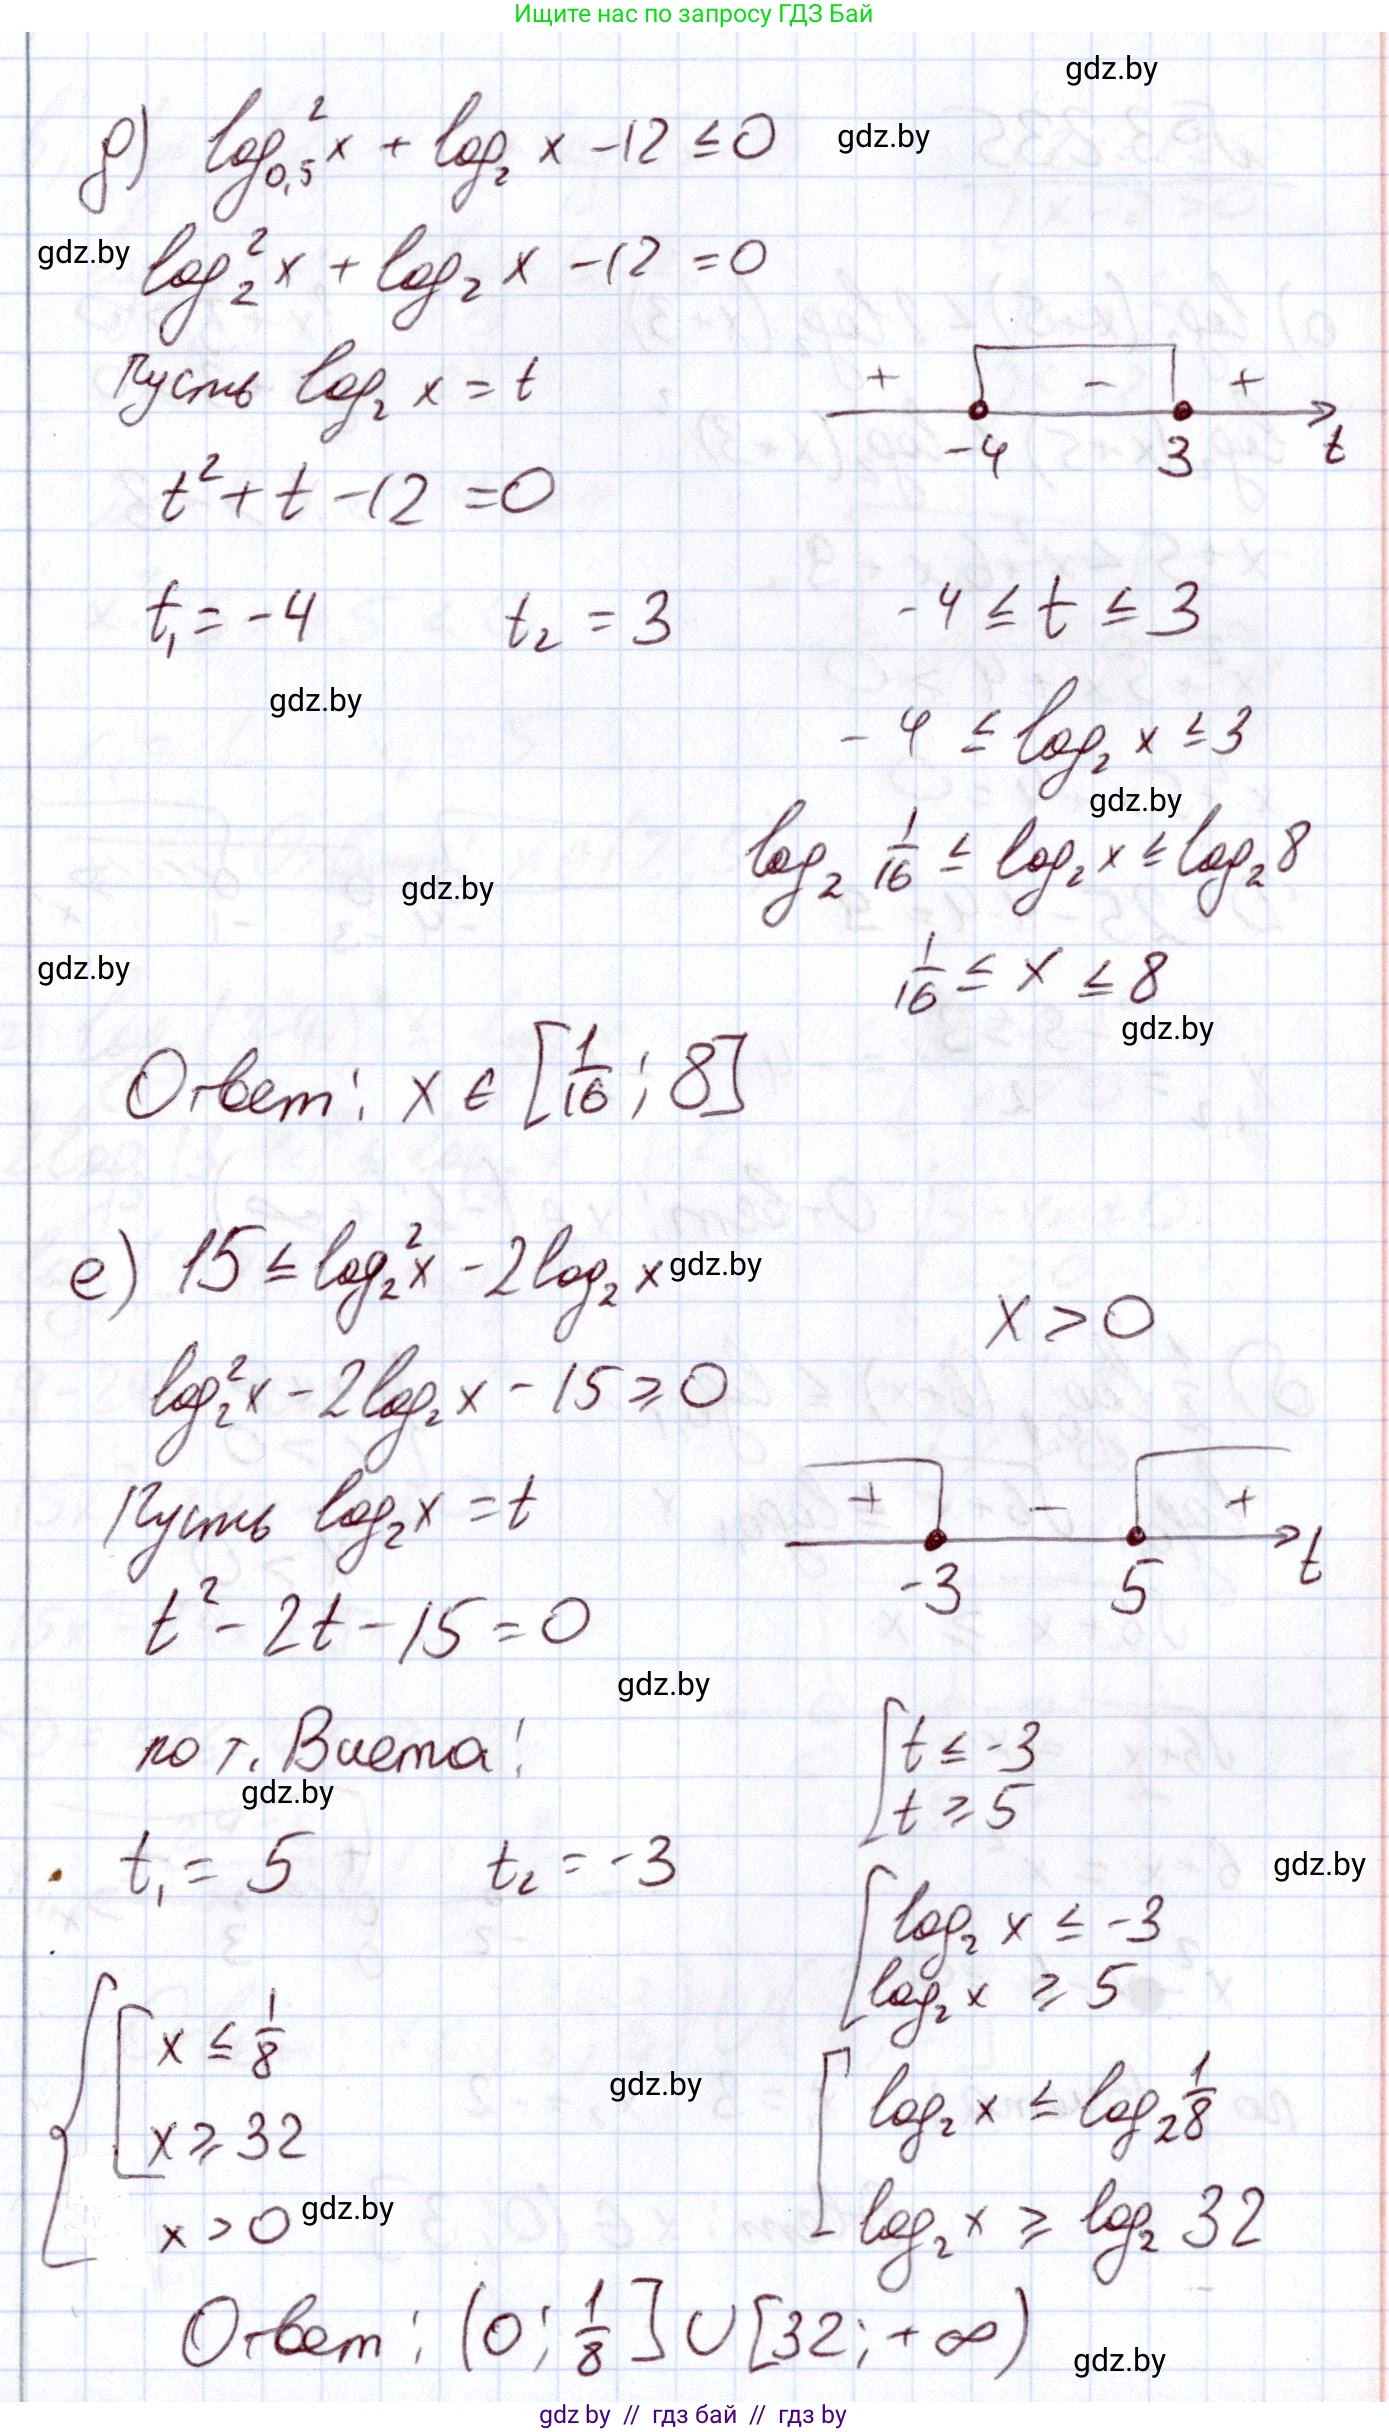 Ищите нас по запросу ГДЗ Бай
gdz.by
д) log²₀,₅ x + log₂ x - 12 ≤ 0
gdz.by
gdz.by
log₂² x + log₂ x - 12 = 0
Пусть log₂ x = t
+ - +
-4 3 t
t² + t - 12 = 0
t₁ = -4 t₂ = 3
-4 ≤ t ≤ 3
gdz.by
-4 ≤ log₂ x ≤ 3
gdz.by
log₂ 1/16 ≤ log₂ x ≤ log₂ 8
gdz.by
gdz.by
1/16 ≤ x ≤ 8
gdz.by
Ответ: x ∈ [1/16; 8]
е) 15 ≤ log₂² x - 2log₂ x
gdz.by
x > 0
log₂² x - 2log₂ x - 15 ≥ 0
Пусть log₂ x = t
+ - +
-3 5 t
t² - 2t - 15 = 0
gdz.by
по т. Виета:
gdz.by
t₁ = 5 t₂ = -3
[ t ≤ -3
t ≥ 5
gdz.by
[ log₂ x ≤ -3
log₂ x ≥ 5
[ log₂ x ≤ log₂ 1/8
log₂ x ≥ log₂ 32
{ [ x ≤ 1/8
x ≥ 32
x > 0
gdz.by
gdz.by
Ответ: (0; 1/8] ∪ [32; +∞)
gdz.by
gdz.by // гдз бай // гдз by